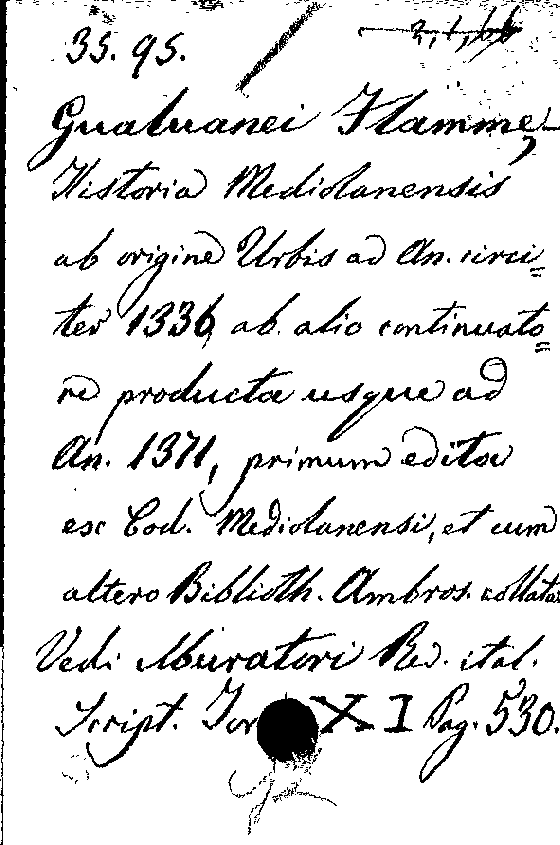 35. 95.
Gualuanei Flammæ,
Historia Mediolanensis
ab origine Urbis ad An. circi=
ter 1336, ab alio continuato=
re producta usque ad
An. 1371, primum edita
ex Cod. Mediolanensi, et cum
altero Biblioth. Ambros. collata
Vedi Muratori Re. ital.
Script. Tom XI Pag. 530.